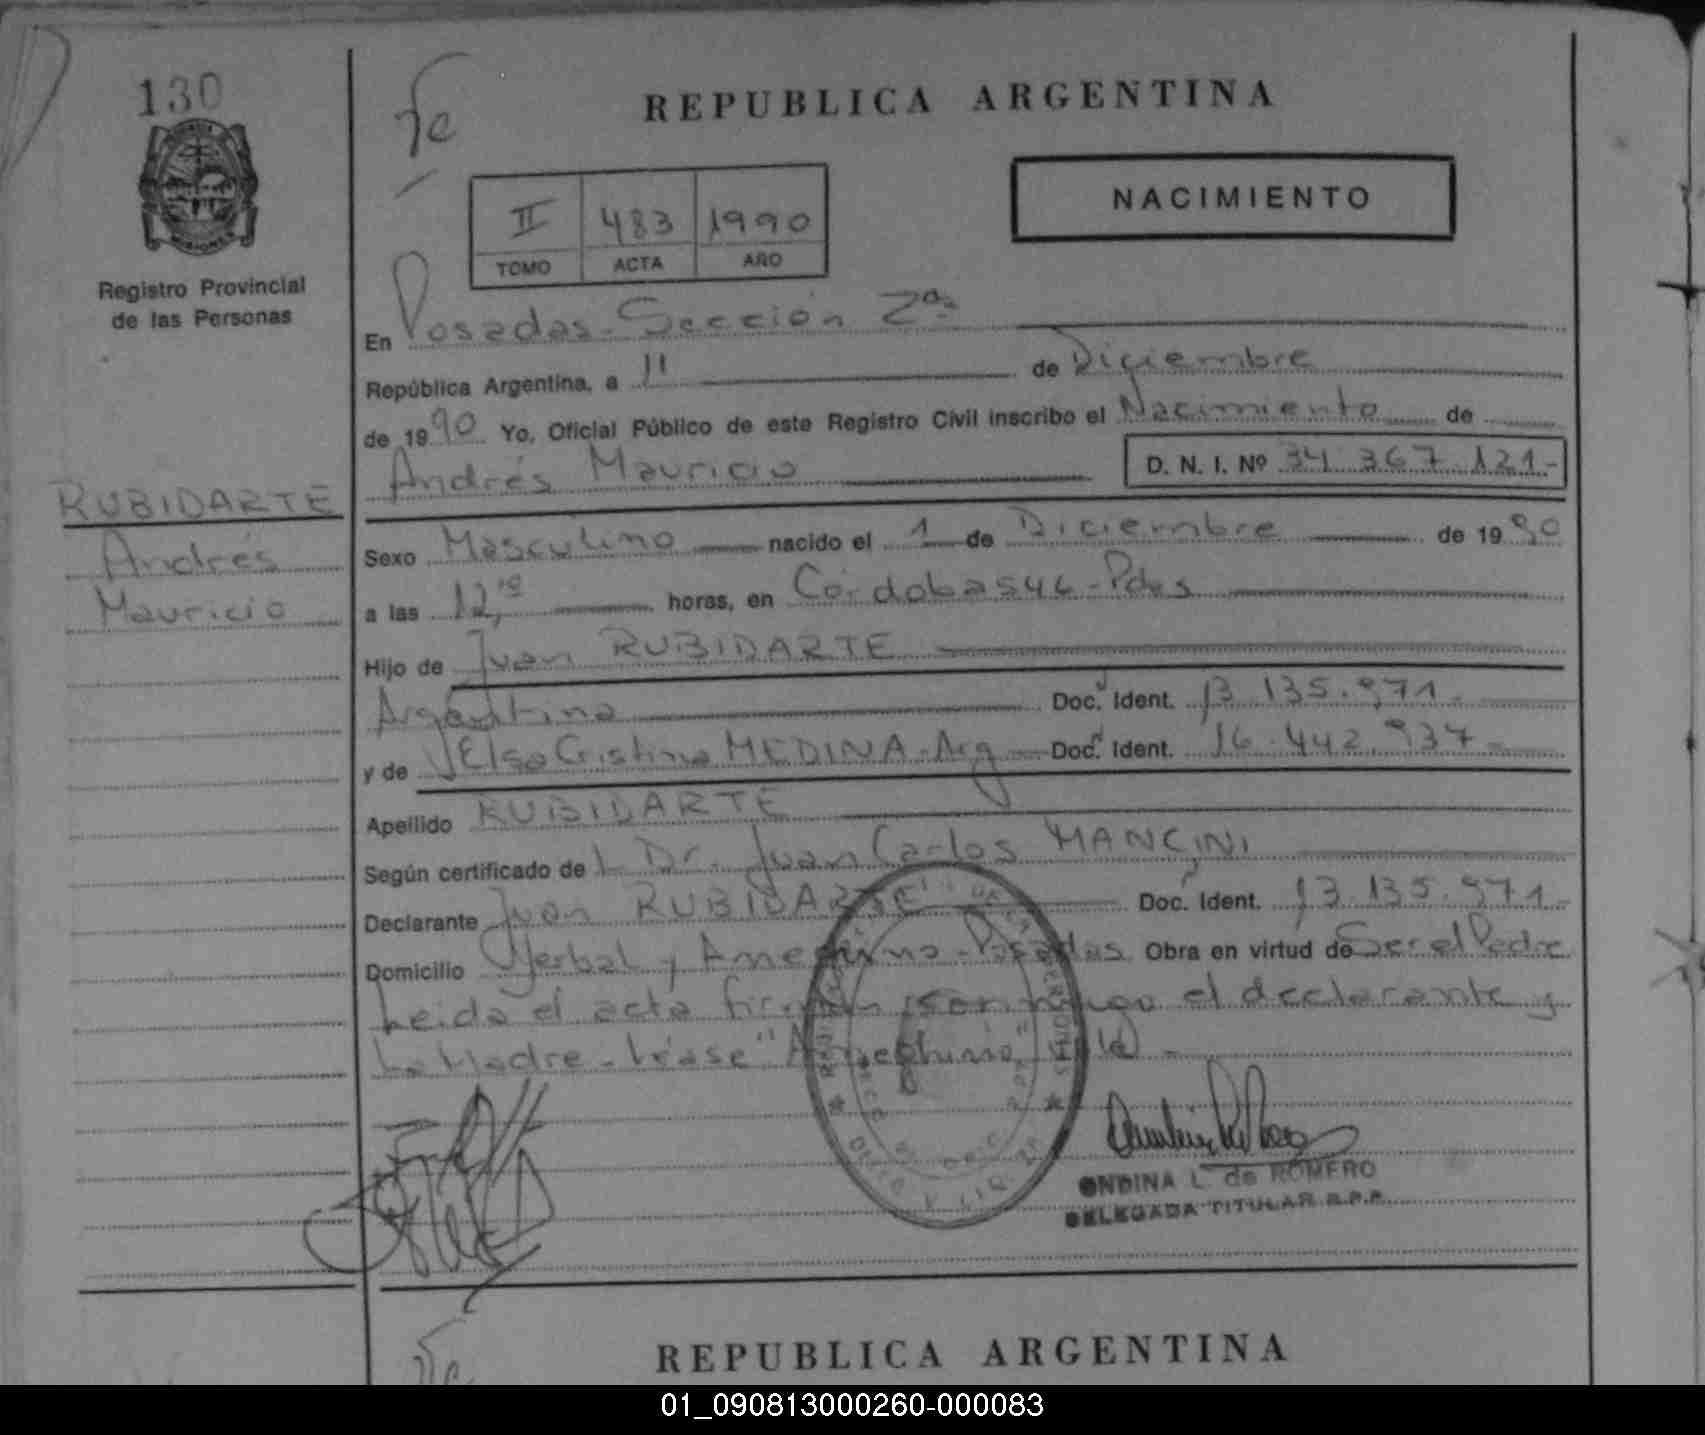 130
Registro Provincial
de las Personas
RUBIDARTE
Andrés
Mauricio
REPUBLICA ARGENTINA
NACIMIENTO
II 483 1990
TOMO ACTA AÑO
En Posadas - Sección 2a
República Argentina, a 11 de Diciembre
de 1990 Yo, Oficial Público de este Registro Civil inscribo el Nacimiento de
Andrés Mauricio D. N. I. Nº 34.367.121-
Sexo Masculino nacido el 1 de Diciembre de 1990
a las 12, horas, en Córdoba 546 - Pdas
Hijo de Juan RUBIDARTE
Argentino Doc. Ident. 13.135.971-
y de Elsa Cristina MEDINA - Arg Doc. Ident. 16.442.937-
Apellido RUBIDARTE
Según certificado de l Dr. Juan Carlos MANCINI
Declarante Juan RUBIDARTE Doc. Ident. 13.135.971-
Domicilio Yerbal y Posadas Obra en virtud de Ser el Padre
Leida el acta firman conmigo el declarante y
La Madre - Léase "Ameghino"
ONDINA L. de ROMERO
DELEGADA TITULAR R.P.P.
REPUBLICA ARGENTINA
01_090813000260-000083